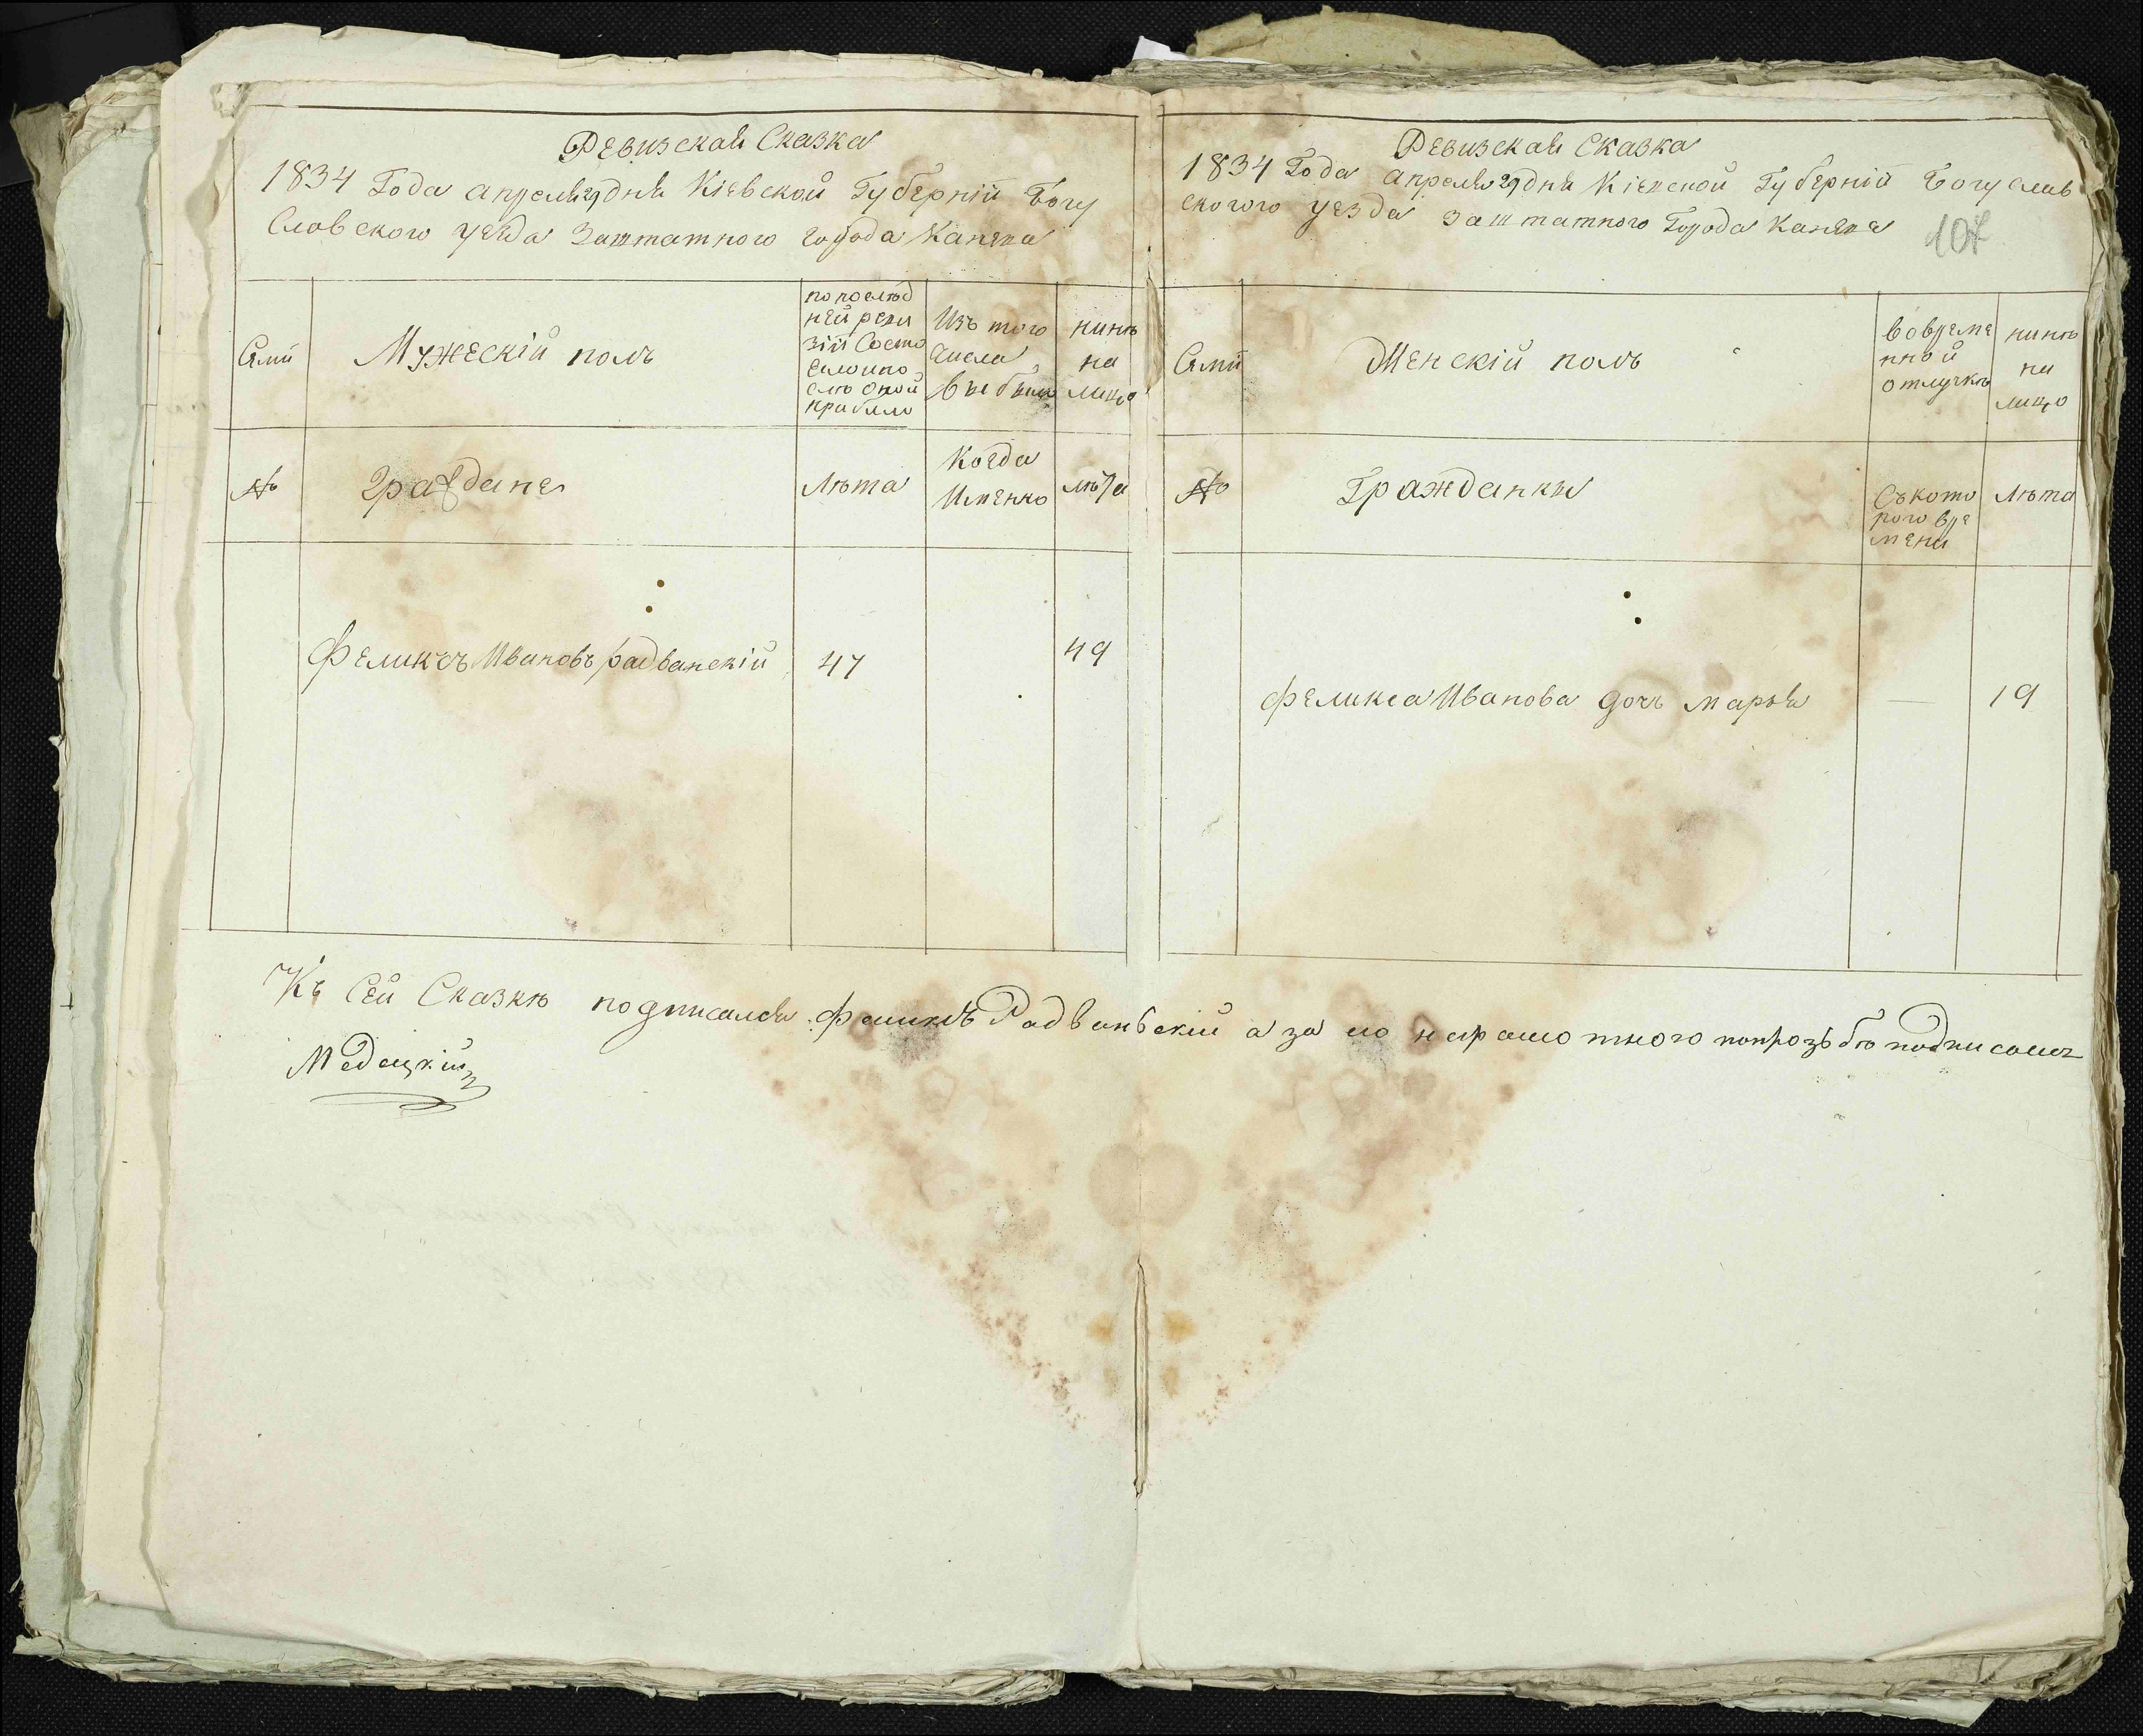 Ревизская Сказка
1834 Года апреля 29 дня Кіевской Губерніи Богу
Славского уезда Заштатного города Канева
Семи
Мужескій полъ
по послѣд
ней реви
зіи Состо
яло и по
слѣ оной
прибыло
Изъ того
числа
выбыло
нинѣ
на
лицо
№
Граждане
Лѣта
Когда
Именно
лѣта
Феликсъ Ивановъ радванскій
47
49
Ревизская Сказка
1834 Года апреля 29 дня Кіевской Губерніи Богуслав
скогого уезда заштатного Города Канева
107
Семи
Женскій полъ
Во време
нной
отлучкѣ
нинѣ
на
лицо
№
Гражданки
Съ кото
рого вре
мени
Лѣта
Феликса Иванова дочь марья
—
19
Къ Сей Сказкѣ подписался Феликсъ Радваньскій а за его неграмотного попрозьбѣ подписалъ
Медецкій